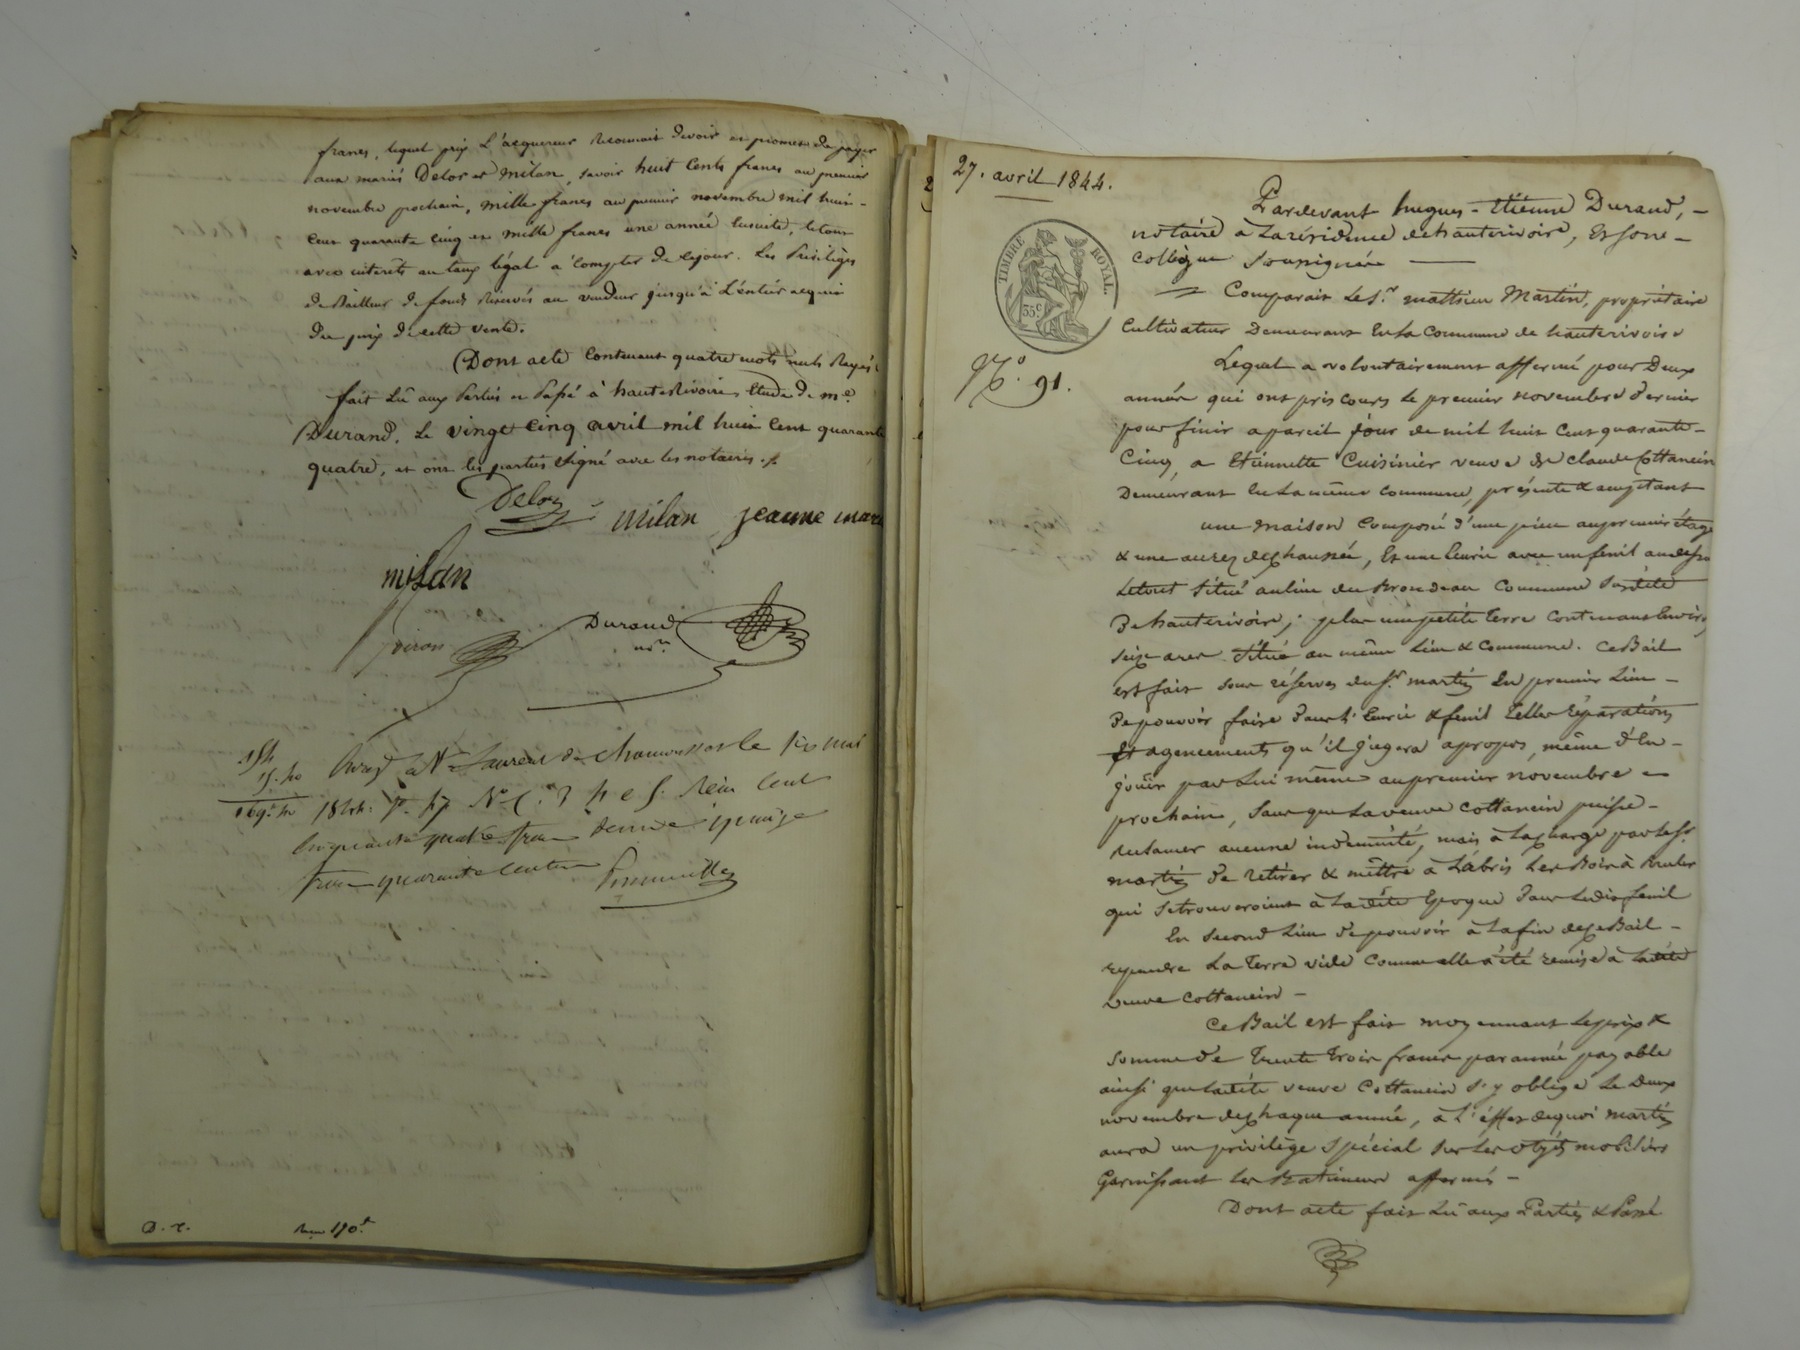 francs, lequel prix L'acquereur Reconnait devoir et promet de payer
aux mariés Delor et milan, savoir huit Cents francs au premier
novembre prochain, mille francs au premier novembre mil huit-
Cent quarante cinq et mille francs une année Ensuite, le tout
avec intérêts au taux légal a compter de cejour. Les Privilèges
de Bailleur de fonds Réservés au vendeur jusqu'à L'entier acquit
du prix de cette vente.
Dont acte Contenant quatre mots nuls Rayés
fait Lû aux Parties et Passé à hauterivoire, Etude de m.e
Durand. Le vingt Cinq avril mil huit Cent quarante
quatre, et ont les parties Signé avec les notaires ./.
Delor milan jeanne marie
milan
Durand
no.re
Laurent de chamousset le six mai
Cinquante quatre francs
francs quarante centimes
D. r.
27. avril 1844.
Pardevant hugues-étienne Durand, -
notaire à Larésidence dehauterivoire, Et son -
collègue Soussignés
TIMBRE ROYAL.
35c
Comparait Le S.r mathieu Martin, propriétaire
Cultivateur Demeurant En La Commune de hauterivoire
N.o 91.
Lequel a volontairement affermé pour Deux
années qui ont pris cours Le premier novembre dernier
pour finir a pareil jour de mil huit Cent quarante-
Cinq, a Etiennette Cuisinier veuve de claude Cottancin
Demeurant En La même commune, présente & acceptant
une maison Composée d'une pièce au premier étage
& une aurez dechaussée, Et une Ecurie avec un fenil au dessus
Letout Situé aulieu du Brondeau Commune Susdite
De hauterivoire; plus une petite terre Contenant Environ
Seize ares Située au même Lieu & Commune. Ce Bail
est fait sous réserves du S.r martin En premier Lieu -
De pouvoir faire dans L'Ecurie & fenil telles réparations
Et agencements qu'il jugera apropos, même d'En -
jouir par Lui même au premier novembre
prochain, Sans que La veuve Cottancin puisse -
reclamer aucune indemnité, mais à La charge par Le S.r
martin de retirer & mettre à L'abris Les Bois à Bruler
qui Se trouveroient à Ladite Epoque dans Ledit fenil
En Second Lieu de pouvoir à La fin de ce Bail -
reprendre La terre vide Comme elle a été remise à Ladite
veuve Cottancin -
Ce Bail est fait moyennant Le prix &
Somme de trente trois francs par année payable
ainsi que Ladite veuve Cottancin S'y oblige Le Deux
novembre de chaque année, à L'effet de quoi martin
aura un privilège Spécial Sur Les objets mobiliers
Garnissant Les Batiments affermés -
Dont acte fait Lû aux Parties & Passé